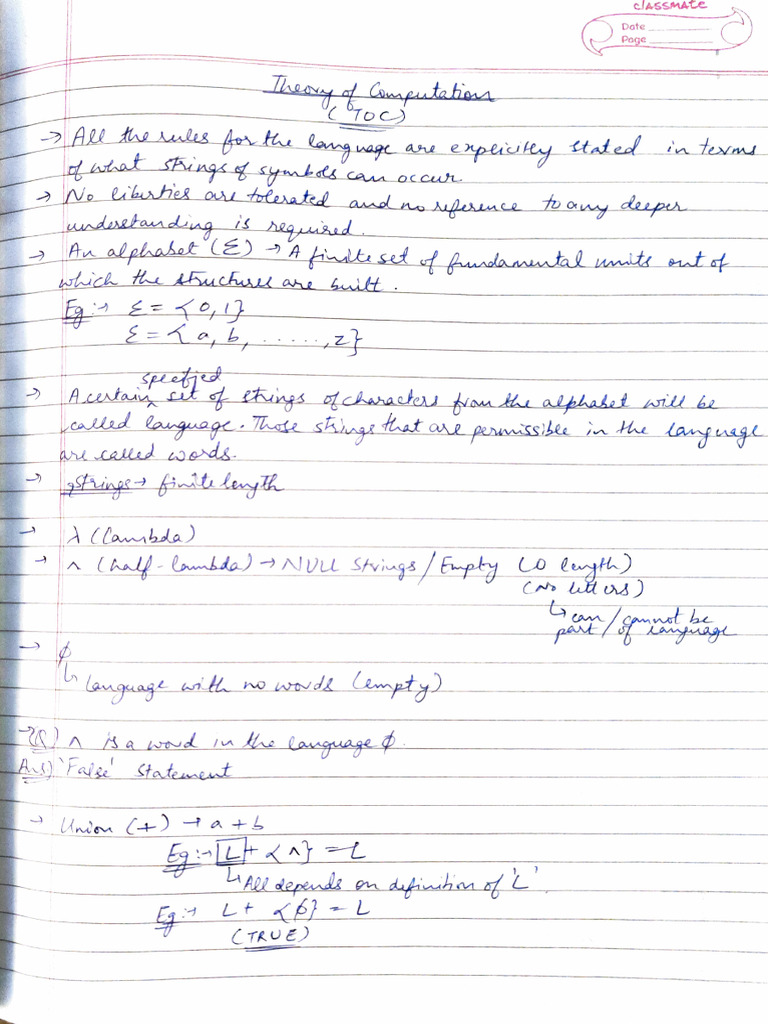 classmate
Date
Page
Theory of Computation
(TOC)
→ All the rules for the language are explicitly stated in terms
of what strings of symbols can occur.
→ No liberties are tolerated and no reference to any deeper
understanding is required.
→ An alphabet (Σ) → A finite set of fundamental units out of
which the structures are built.
Eg:→ Σ = {0,1}
Σ = {a, b, ......, z}
specified
→ A certain ^ set of strings of characters from the alphabet will be
called language. Those strings that are permissible in the language
are called words.
→ strings → finite length
→ λ (lambda)
→ ʌ (half-lambda) → NULL strings / Empty (0 length)
(No letters)
↳ can / cannot be
part / of language
→ ϕ
↳ language with no words (empty)
→ (Q) ʌ is a word in the language ϕ.
Ans) 'False' statement
→ Union (+) → a + b
Eg:→ L + {ʌ} = L
↳ All depends on definition of 'L'.
Eg:→ L + {ϕ} = L
(TRUE)